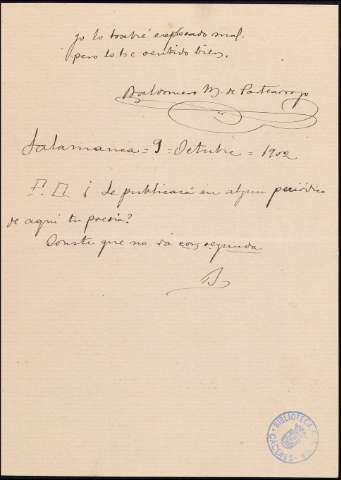 Yo lo habré expresado mal
pero lo he sentido bien.
Baldomero M. de Portearroyo
Salamanca = 9 = Octubre = 1902
P. D. ¿Se publicará en algun periódico
de aqui tu poesia?
Conste que no vá con segunda.
B
BIBLIOTECA
CACERES